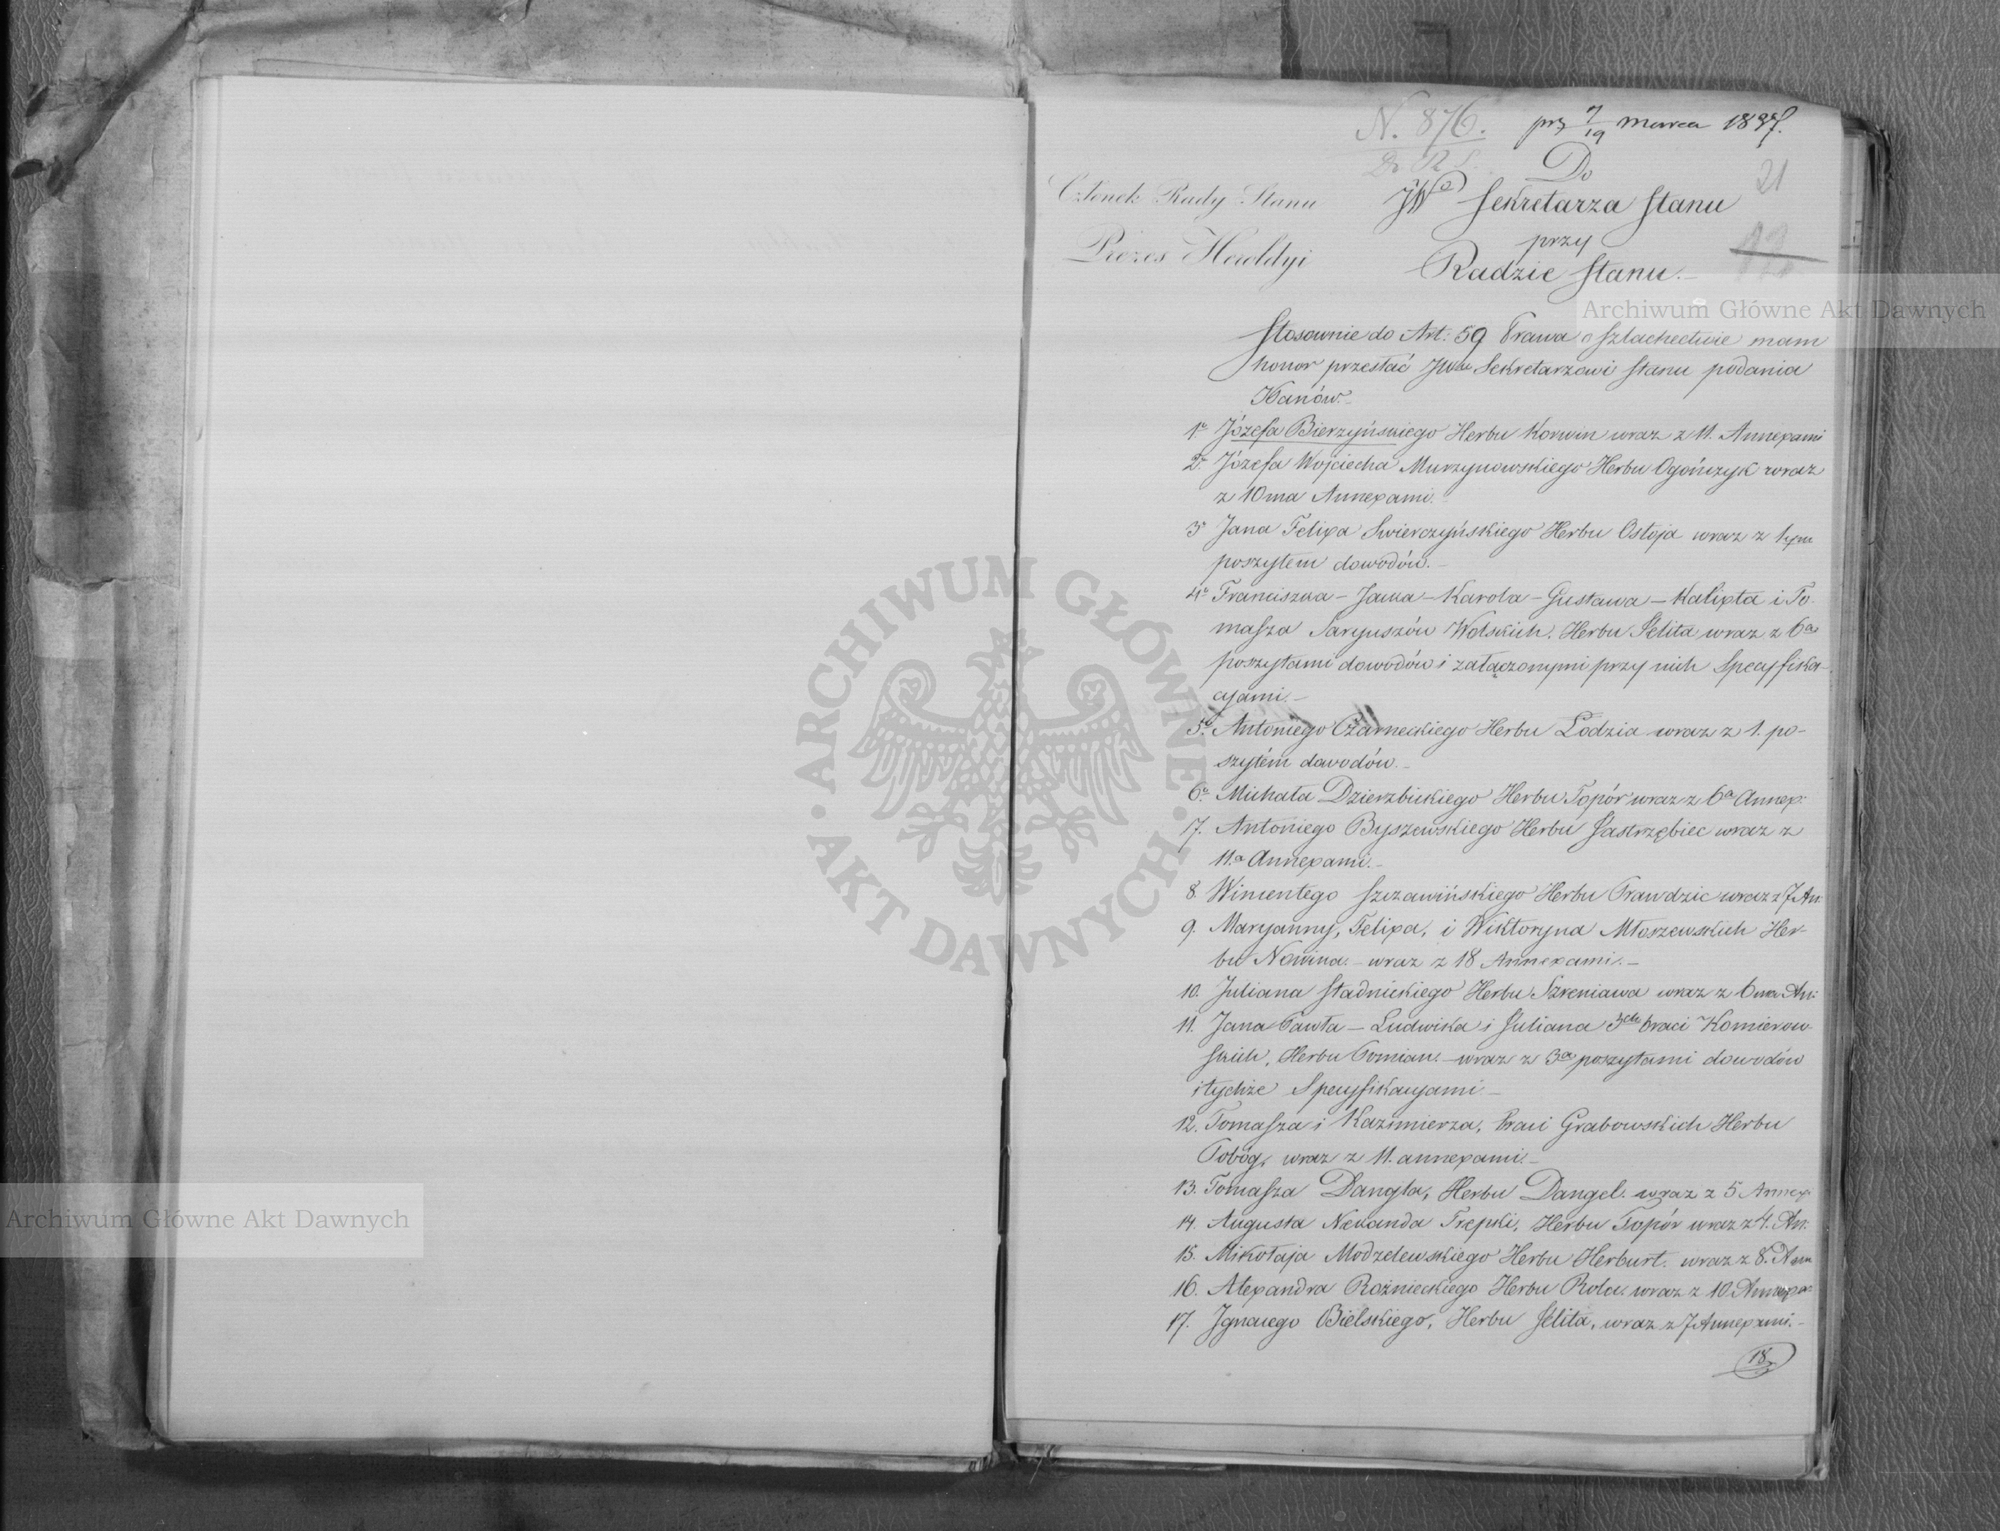 N. 876. prz 7/19 Marca 1837.
Do
21
Członek Rady Stanu
JWo Sekretarza Stanu
przy
Prezes Heroldyi
Radzie Stanu.
Stosownie do Art: 59 Prawa o Szlachectwie mam
honor przesłać JWmu Sekretarzowi Stanu podania
1o Józefa Bierzyńskiego Herbu Korwin wraz z 11. Annexami
2o Józefa Wojciecha Murzynowskiego Herbu Ogończyk wraz
z 10ma Annexami.
3o Jana Felixa Swierczyńskiego Herbu Ostoja wraz z 1ym
poszytem dowodów.
4o Franciszka – Jacka – Karola – Gustawa – Kalixta i To-
masza Saryuszów Wolskich, Herbu Jelita wraz z 6a
poszytami dowodów i załączonymi przy nich Specyfika-
cyami
5o Antoniego Czarneckiego Herbu Lodzia wraz z 1. po-
szytem dowodów.
6o Michała Dzierzbickiego Herbu Topór wraz z 6a Annex:
7. Antoniego Byszewskiego Herbu Jastrzębiec wraz z
11.a Annexami.
8. Wincentego Szczawińskiego Herbu Prawdzic wraz z 7 An:
9. Maryanny, Felixa, i Wiktoryna Młoszewskich Her-
bu Nowina. – wraz z 18 Annexami. –
10. Juliana Stadnickiego Herbu Szreniawa wraz z 6ma An:
11. Jana Pawła – Ludwika i Juliana 3ch braci Komierow-
skich, Herbu Pomian. wraz z 3a poszytami dowodów
i tychże Specyfikacyami –
12. Tomasza i Kazimierza, braci Grabowskich Herbu
Pobóg, wraz z 11. annexami. –
13. Tomasza Dangla, Herbu Dangel. wraz z 5 Annex
14. Augusta Nekanda Trepki, Herbu Topór wraz z 4. An:
15. Mikołaja Modzelewskiego Herbu Herburt. wraz z 8. Ann
16. Alexandra Rożnieckiego Herbu Rola. wraz z 10. Annexa:
17. Ignacego Bielskiego, Herbu Jelita, wraz z 7 Annexami. –
18
Archiwum Główne Akt Dawnych
Archiwum Główne Akt Dawnych
· ARCHIWUM GŁÓWNE · AKT DAWNYCH